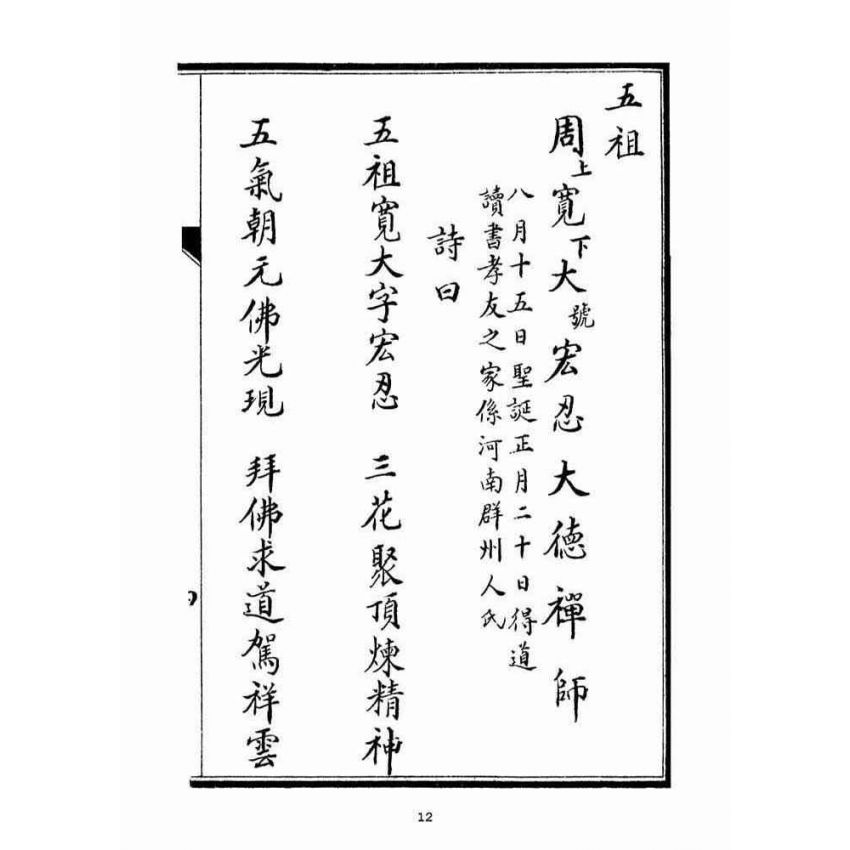 五祖
周上寬下大號宏忍大德禪師
八月十五日聖誕正月二十日得道
讀書孝友之家係河南群州人氏
詩曰
五祖寬大字宏忍 三花聚頂煉精神
五氣朝元佛光現 拜佛求道駕祥雲
12